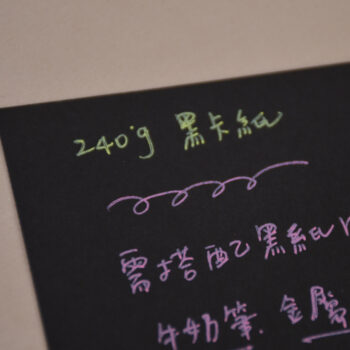 240g 黑卡紙
需搭配黑紙
牛奶筆.金屬